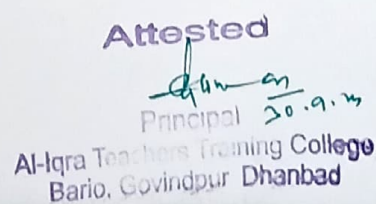 Attested
Principal
Al-Iqra Teachers Training College
Bario, Govindpur Dhanbad